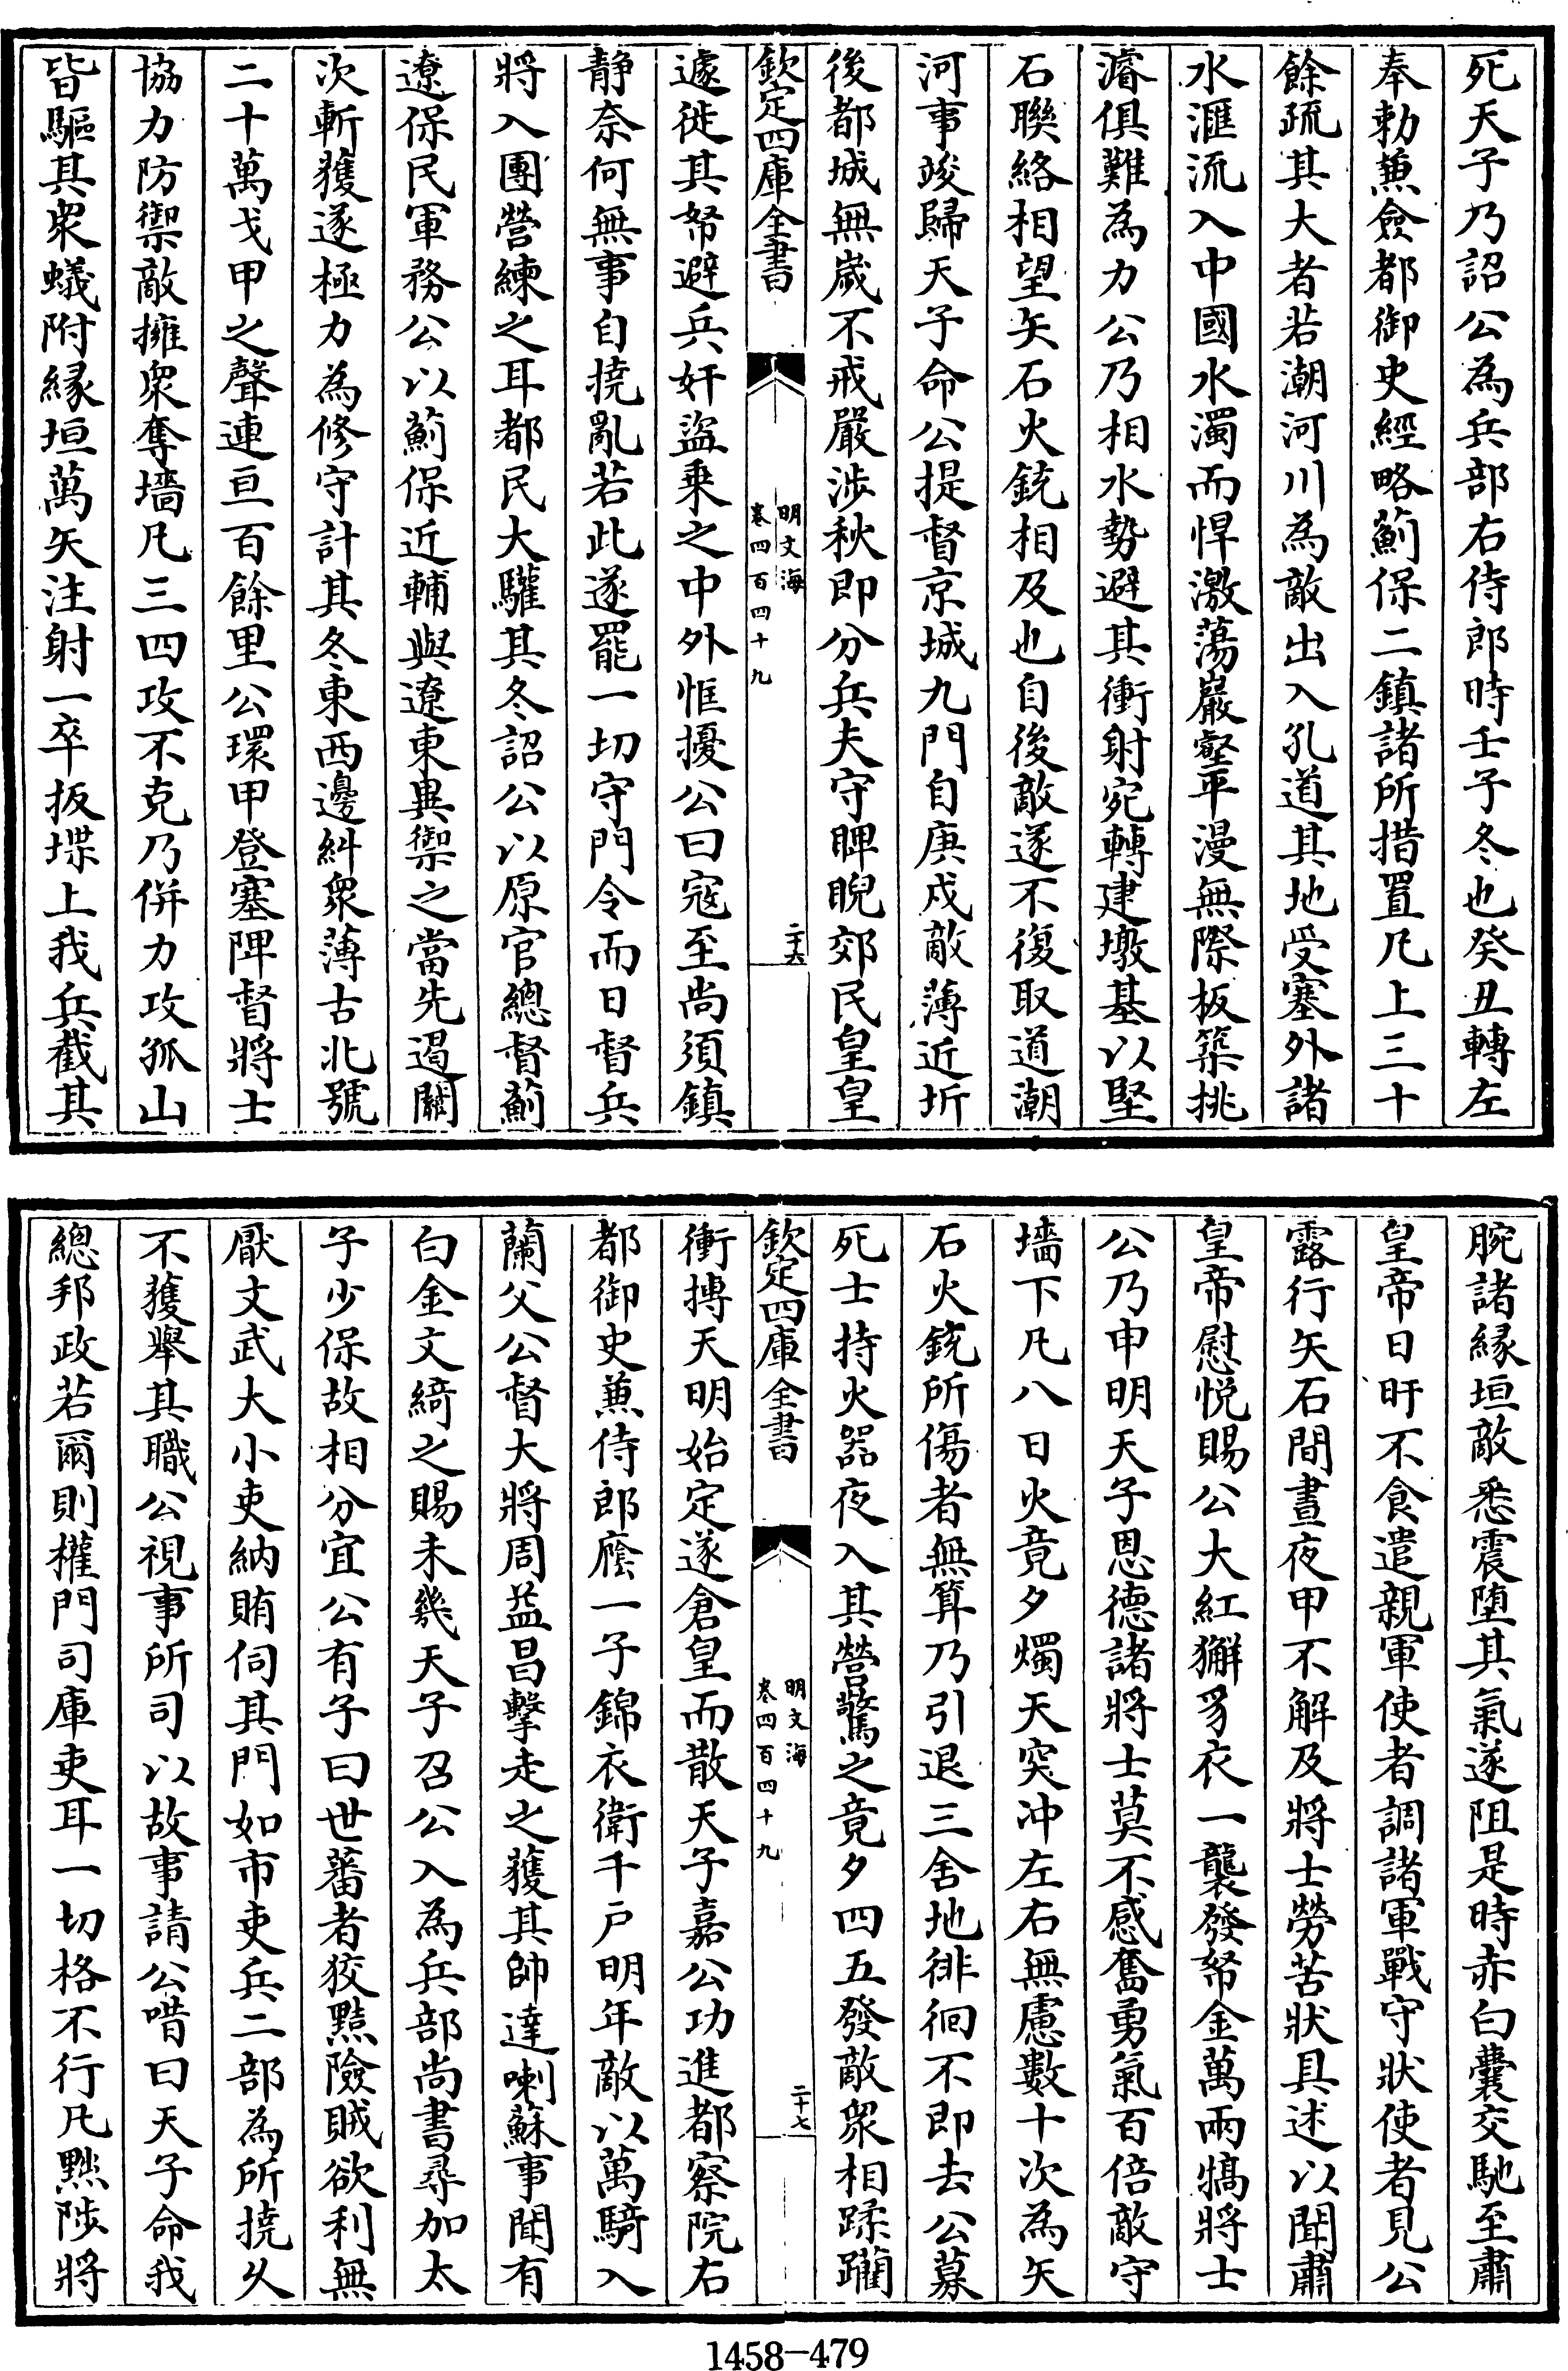 死天子乃詔公為兵部右侍郎時壬子冬也癸丑轉左
奉勅兼僉都御史經略薊保二鎮諸所措置凡上三十
餘疏其大者若潮河川為敵出入孔道其地受塞外諸
水滙流入中國水濁而悍激蕩巖壑平漫無際板築挑
濬俱難為力公乃相水勢避其衝射宛轉建墩基以堅
石聯絡相望矢石火銃相及也自後敵遂不復取道潮
河事竣歸天子命公提督京城九門自庚戍敵薄近圻
後都城無歲不戒嚴涉秋即分兵夫守睥睨郊民皇皇
欽定四庫全書
明文海
卷四百四十九
二十六
遽徙其帑避兵奸盜乗之中外恇擾公曰寇至尚須鎮
静奈何無事自撓亂若此遂罷一切守門令而日督兵
將入團營練之耳都民大驩其冬詔公以原官總督薊
遼保民軍務公以薊保近輔與遼東異禦之當先遏關
次斬獲遂極力為修守計其冬東西邊糾衆薄古北號
二十萬戈甲之聲連亘百餘里公環甲登塞陴督將士
協力防禦敵擁衆奪墻凡三四攻不克乃併力攻孤山
皆驅其衆蟻附縁垣萬矢注射一卒扳堞上我兵截其
腕諸縁垣敵悉震墮其氣遂阻是時赤白囊交馳至肅
皇帝日旰不食遣親軍使者調諸軍戰守狀使者見公
露行矢石間晝夜甲不解及將士勞苦狀具述以聞肅
皇帝慰悦賜公大紅獬豸衣一襲發帑金萬兩犒將士
公乃申明天子恩德諸將士莫不感奮勇氣百倍敵守
墻下凡八日火竟夕燭天突沖左右無慮數十次為矢
石火銃所傷者無算乃引退三舍地徘徊不即去公募
死士持火器夜入其營驚之竟夕四五發敵衆相蹂躪
欽定四庫全書
明文海
卷四百四十九
二十七
衝摶天明始定遂倉皇而散天子嘉公功進都察院右
都御史兼侍郎廕一子錦衣衛千戸明年敵以萬騎入
蘭父公督大將周益昌擊走之獲其帥達喇蘇事聞有
白金文綺之賜未幾天子召公入為兵部尚書尋加太
子少保故相分宜公有子曰世蕃者狡黠險賊欲利無
厭文武大小吏納賄伺其門如市吏兵二部為所撓乆
不獲舉其職公視事所司以故事請公唶曰天子命我
總邦政若爾則權門司庫吏耳一切格不行凡黜陟將
1458-479